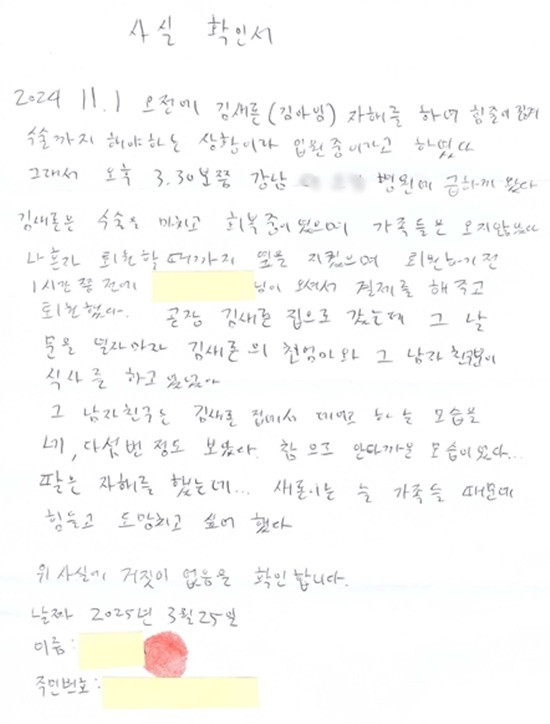 사실 확인서
2024 11.1 오전에 김새론(김아임) 자해를 하여 힘줄이
수술까지 해야하는 상황이라 입원중이라고 하였다
그래서 오후 3.30분쯤 강남 병원에 급하게 갔다
김새론은 수술을 마치고 회복중이었으며 가족들은 오지않았다
나혼자 퇴원할때까지 옆을 지켰으며 퇴원하기전
1시간쯤 전에 님이 오셔서 결제를 해주고
퇴원했다. 곧장 김새론 집으로 갔는데 그 날
문을 열자마자 김새론의 친엄마와 그 남자친구분이
식사를 하고 있었다
그 남자친구는 김새론 집에서 데이트 하는 모습을
네, 다섯번 정도 보았다. 참으로 안타까운 모습이었다...
팔은 자해를 했는데... 새론이는 늘 가족들 때문에
힘들고 도망치고 싶어 했다
위 사실에 거짓이 없음을 확인합니다.
날짜 2025년 3월 25일
이름:
주민번호: